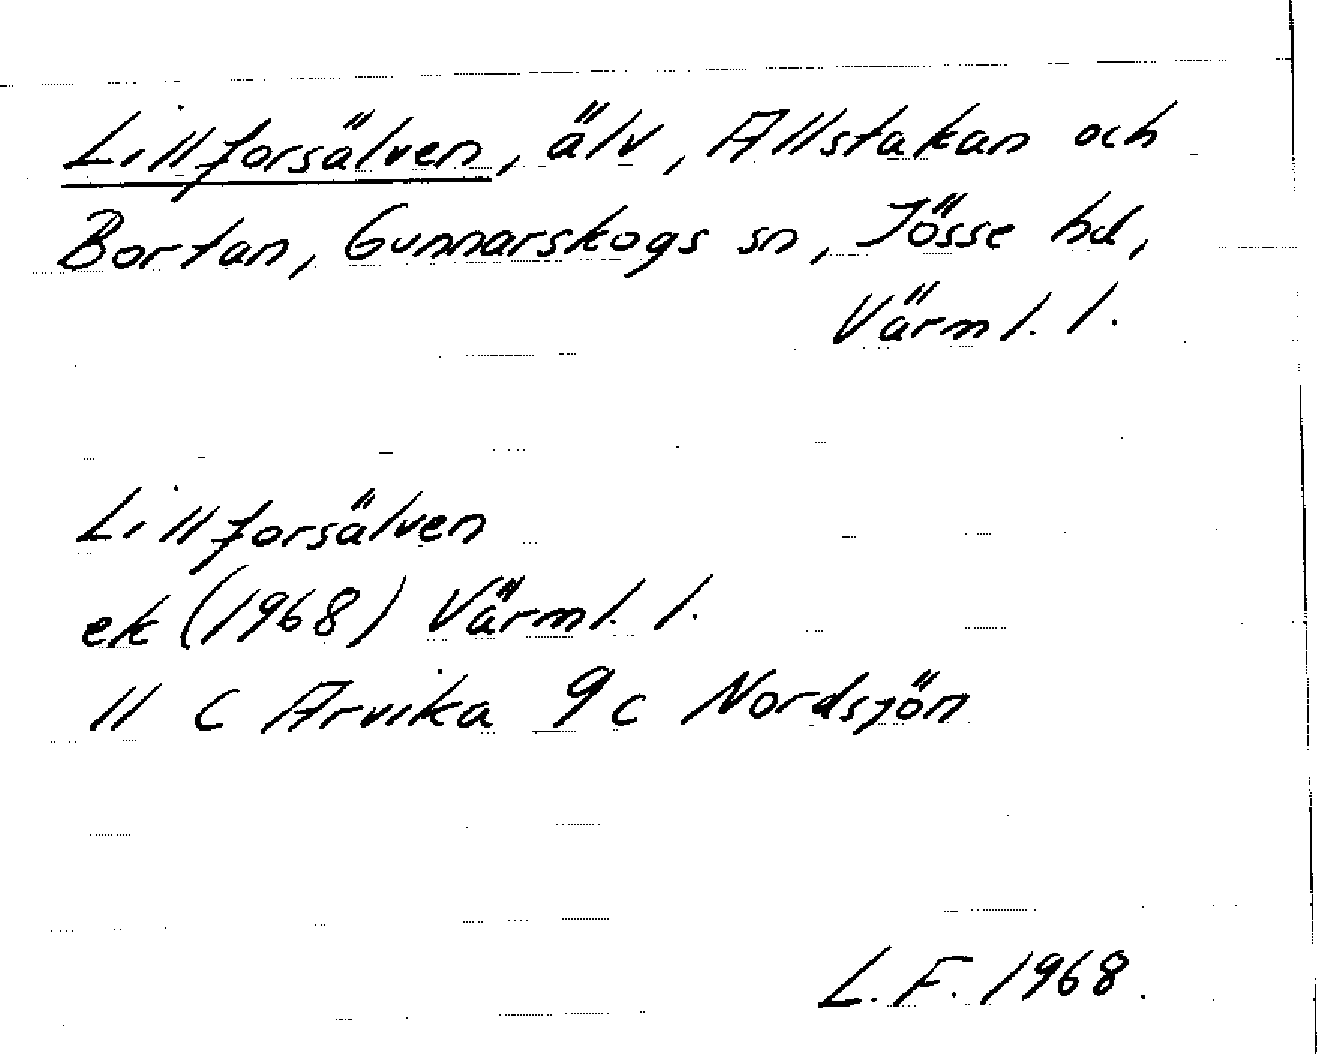 Lillforsälven, älv, Allstakan och
Bortan, Gunnarskogs sn, Jösse hd,
Värml. l.
Lillforsälven
ek (1968) Värml. l.
11 C Arvika 9c Nordsjön
L. F. 1968.